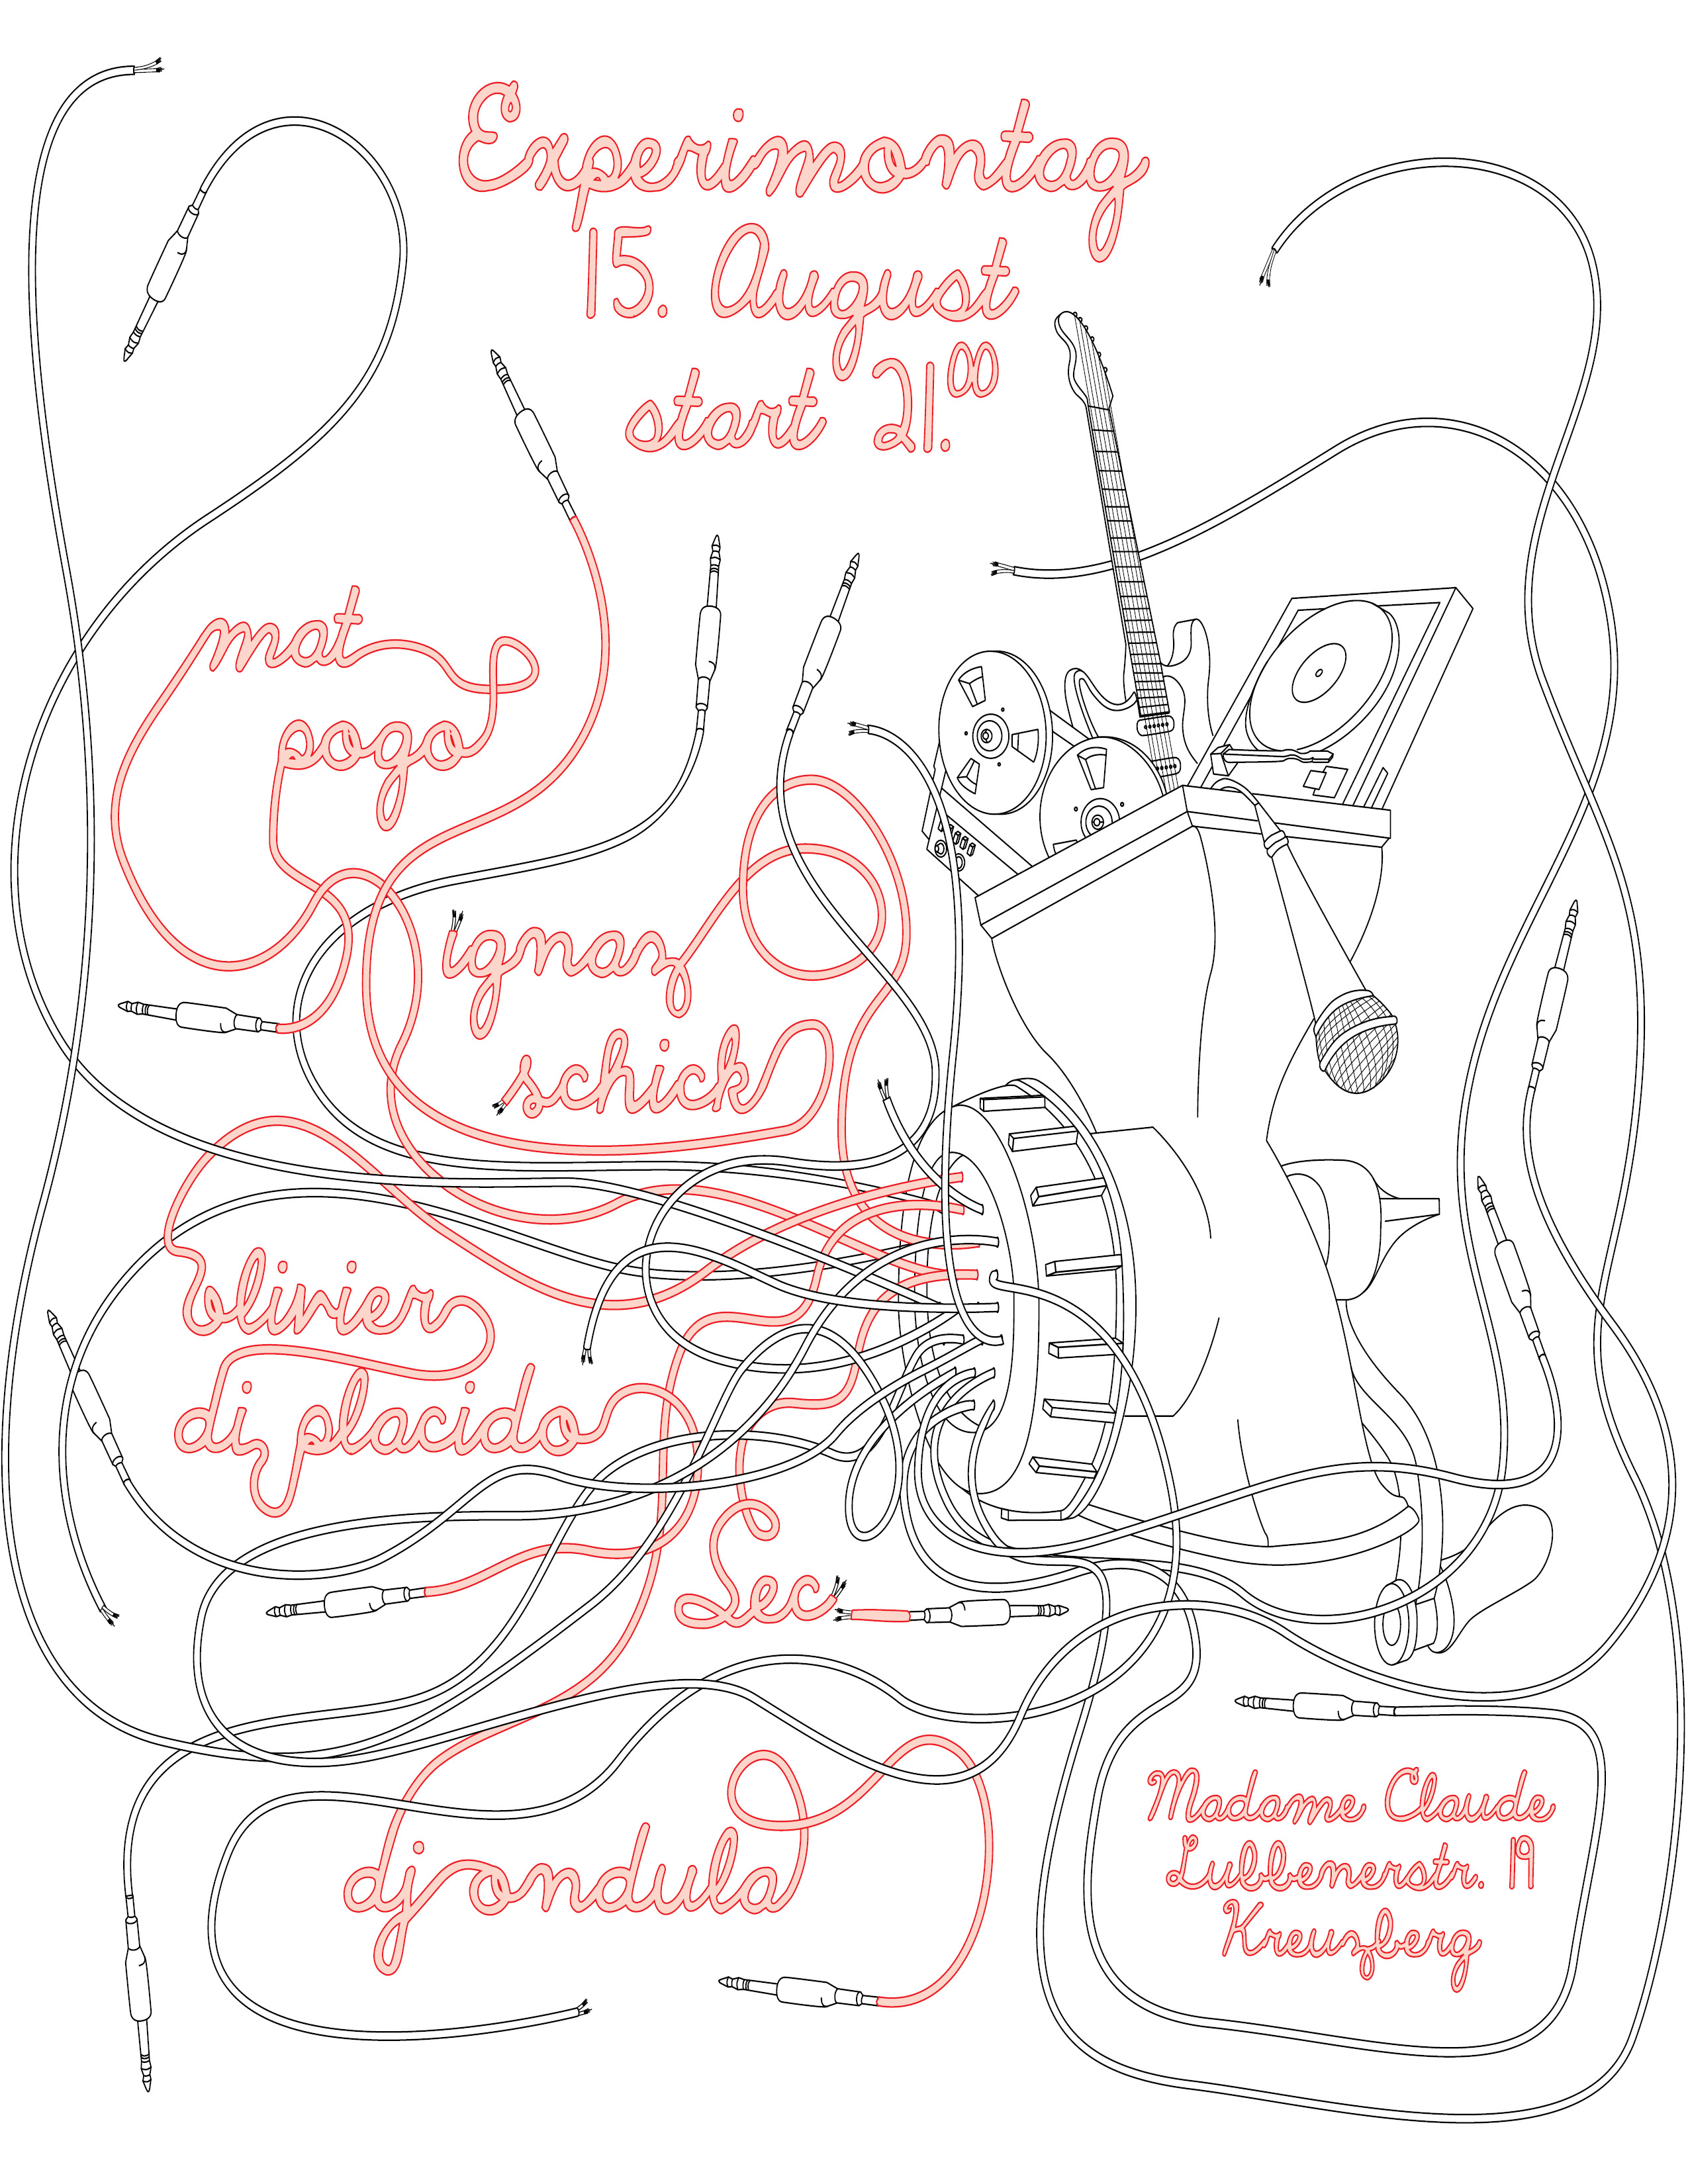 Experimontag
15. August
start 21.00
mat
pogo
ignaz
schick
olivier
di placido
Sec
dj ondula
Madame Claude
Lubbenerstr. 19
Kreuzberg